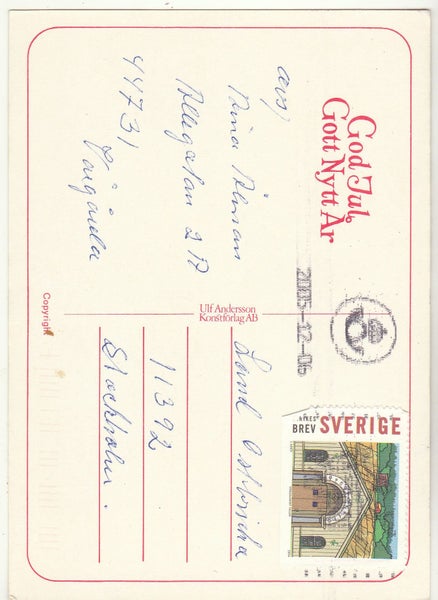 God Jul
Gott Nytt År
avs)
Nina
Allégatan 2 A
447 31
Vårgårda
Copyright
Ulf Andersson
Konstförlag AB
2005-12-06
BREV SVERIGE
11392
Stockholm.